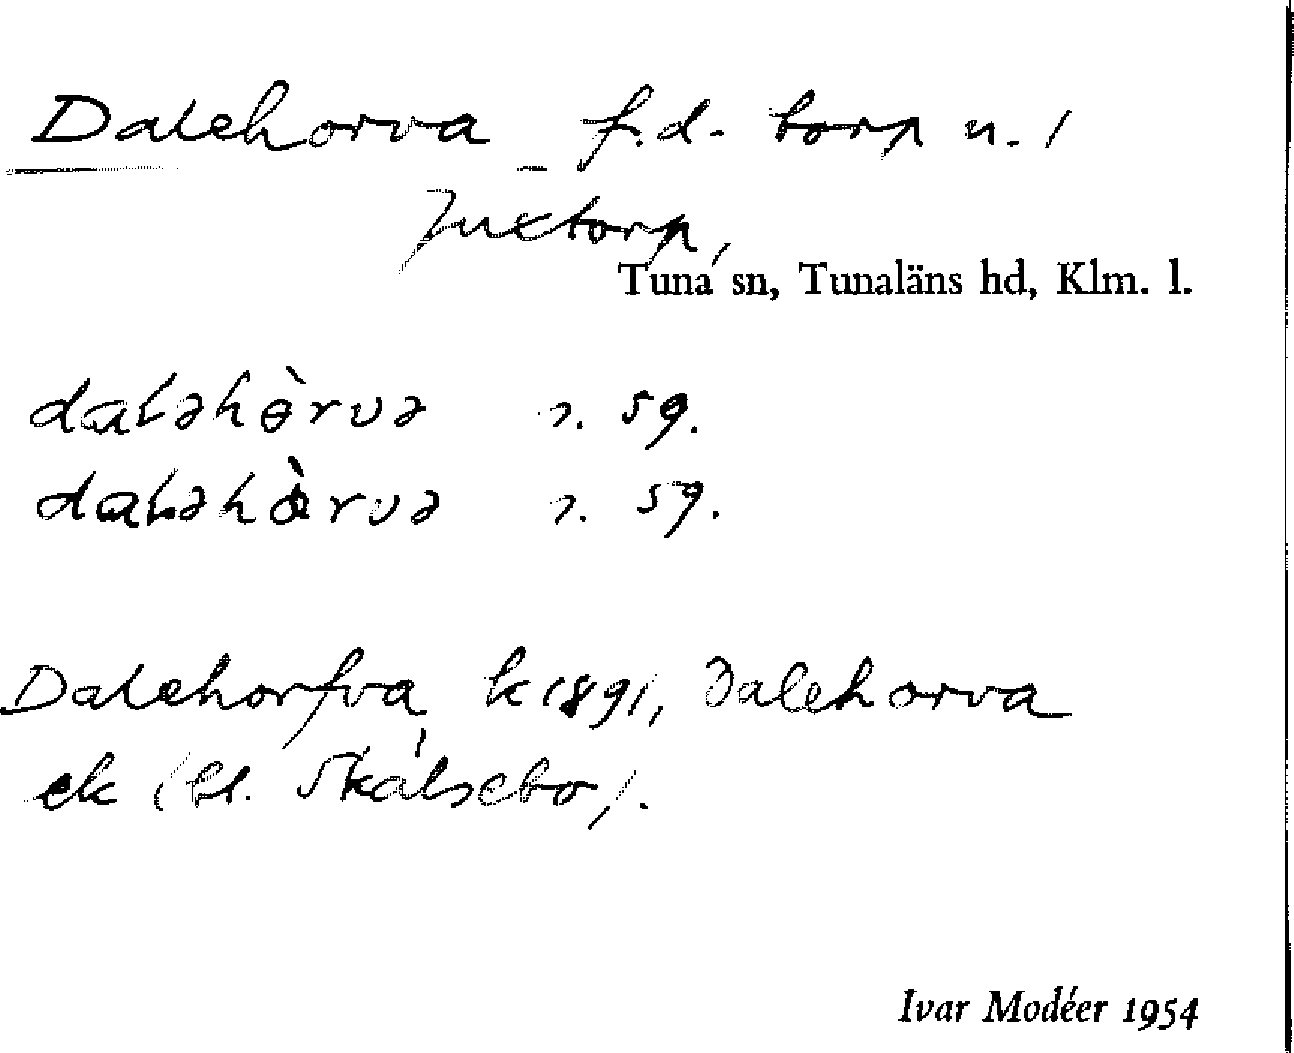 Dalehorva f.d. torp u. /
Juxtorp,
Tuna sn, Tunaläns hd, Klm. l.
daləhɵ̀rvə ɿ. 59.
daləhɑ̀rvə ɿ. 59.
Dalehorfva k 1891, Dalehorva
ek (bl. Skälsebo).
Ivar Modéer 1954